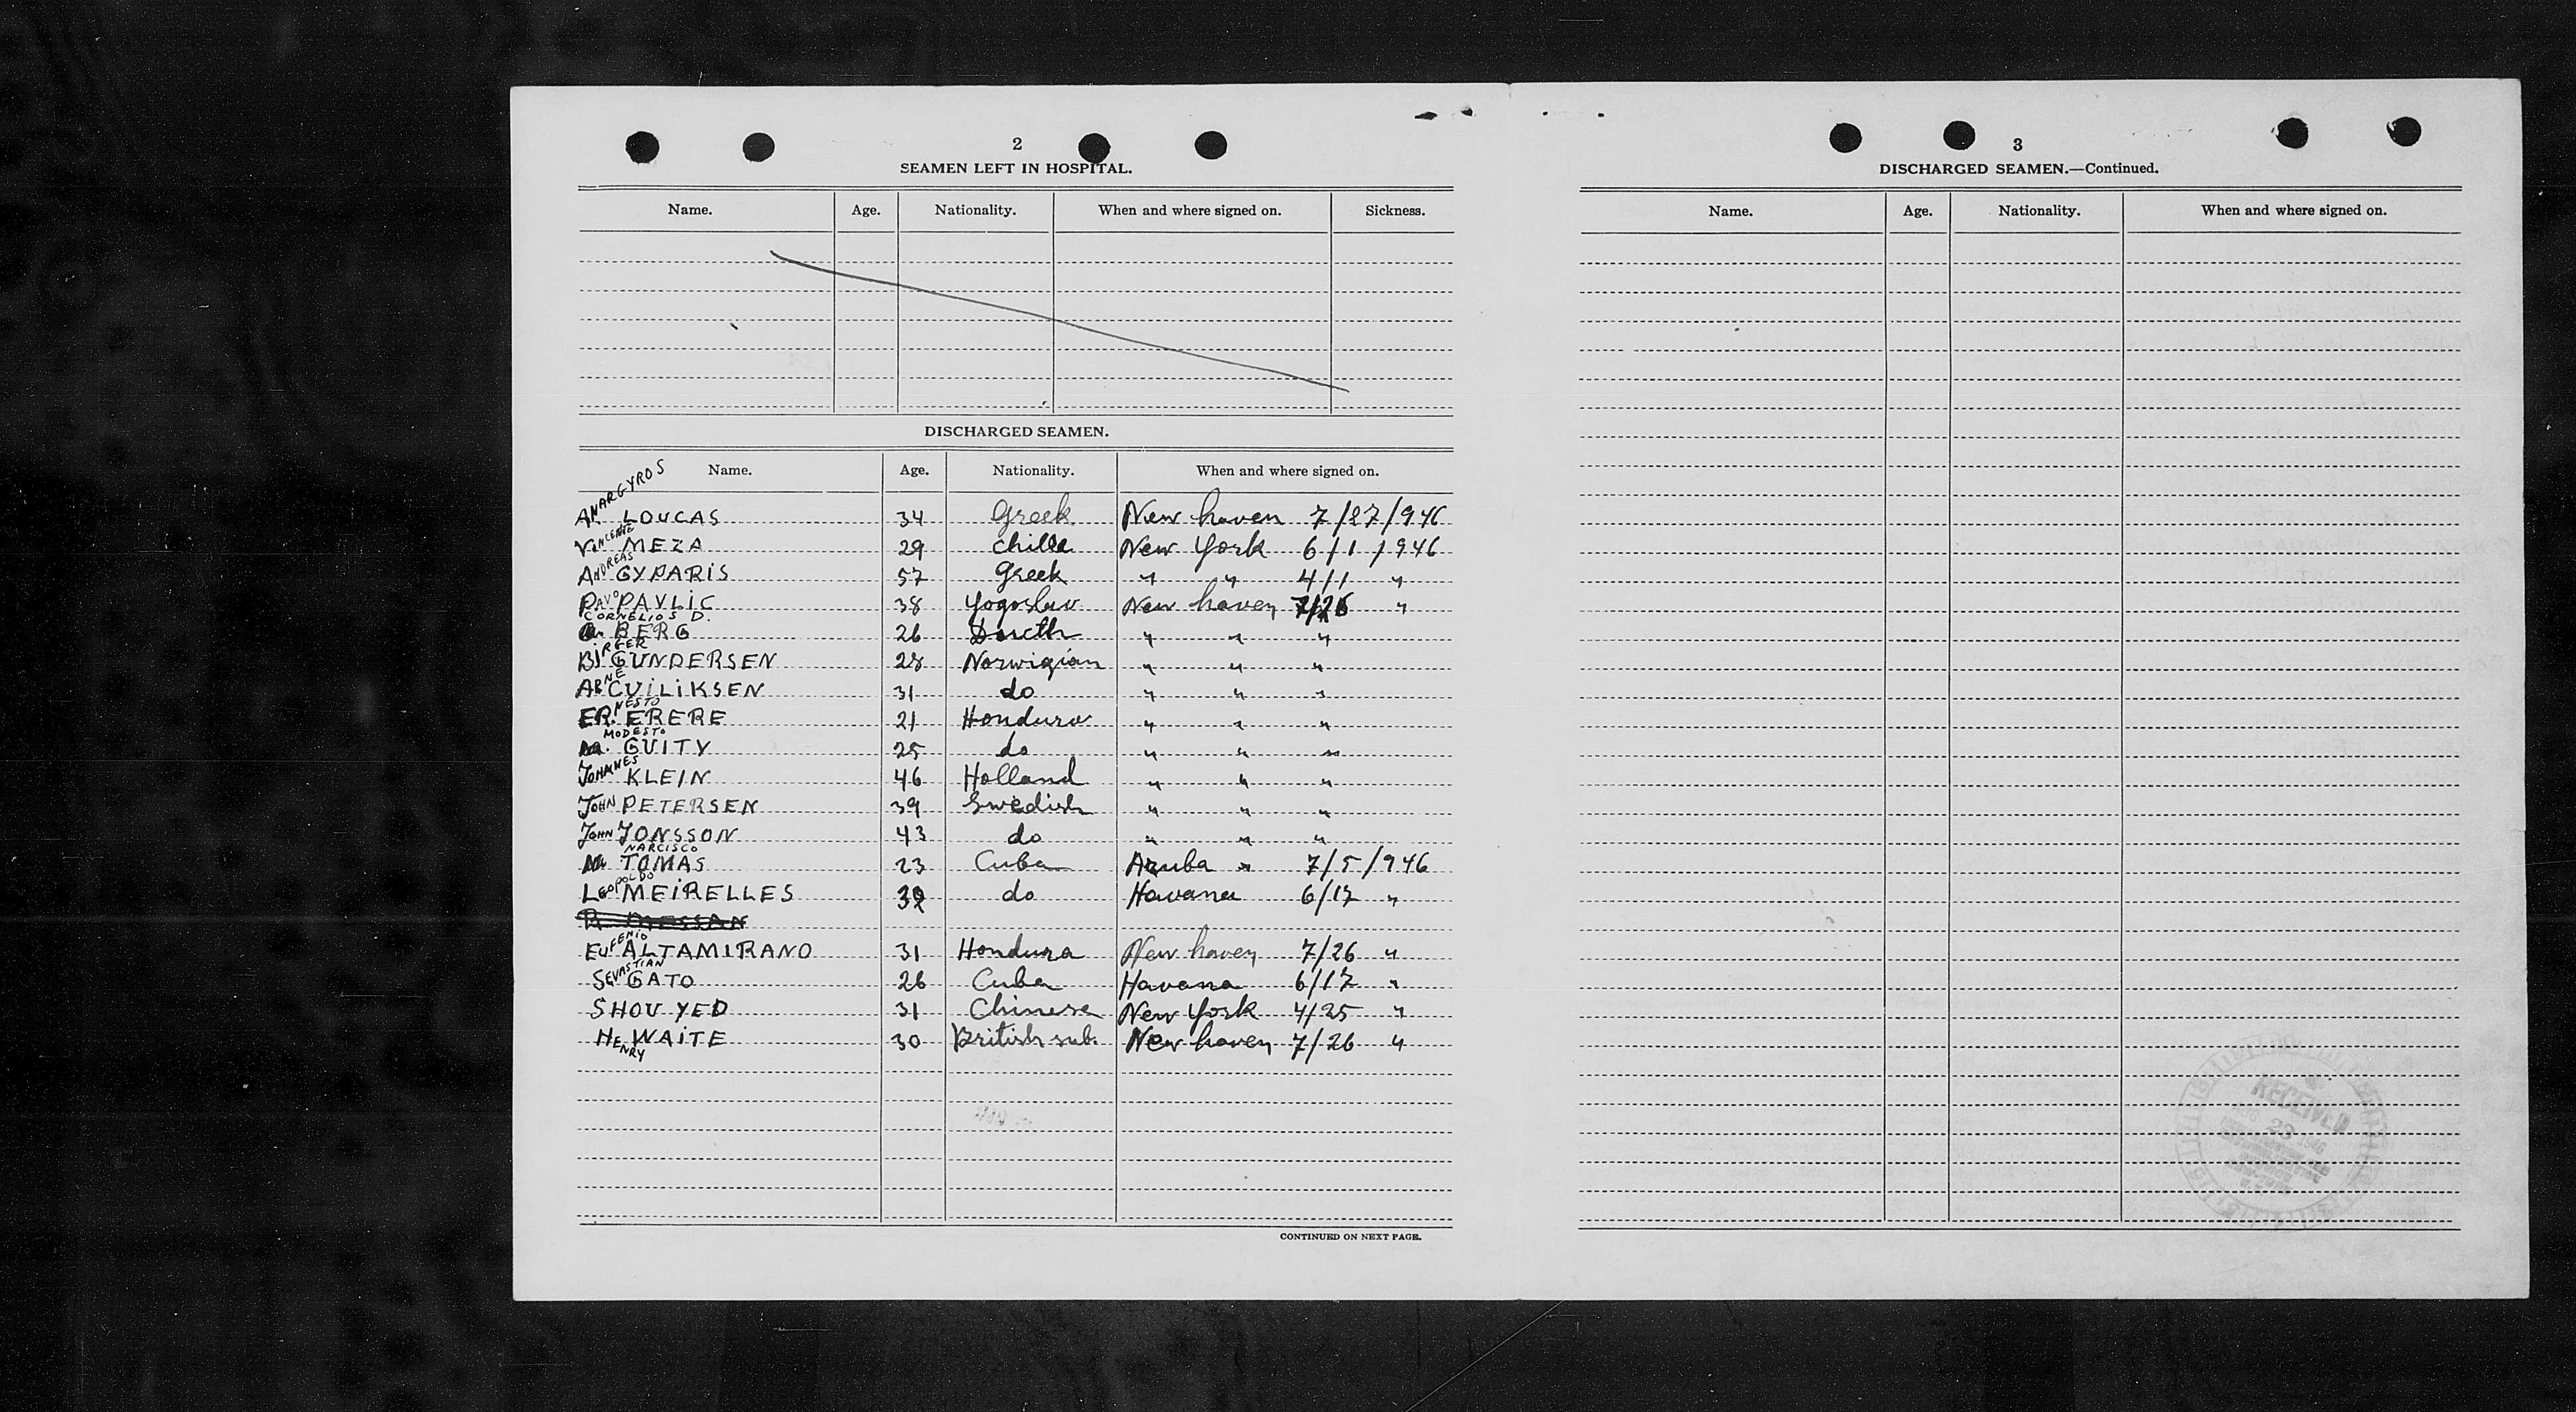 2
SEAMEN LEFT IN HOSPITAL.
Name. Age. Nationality. When and where signed on. Sickness.
DISCHARGED SEAMEN.
Name. Age. Nationality. When and where signed on.
ANARGYROS LOUCAS 34 Greek New haven 7/27/946
VINCENTE MEZA 29 Chille New York 6/1/946
ANDREAS GYPARIS 57 Greek " " 4/1 "
PAVO PAVLIC 38 Yogoslav New haven 7/26 "
CORNELIOS D. BERG 26 " " "
BIRGER GUNDERSEN 28 Norwigian " " "
ARNE CVILIKSEN 31 do " " "
ERNESTO ERERE 21 Hondura " " "
MODESTO GUITY 25 do " " "
JOHANNES KLEIN 46 Holland " " "
JOHN PETERSEN 39 Swedish " " "
JOHN JONSSON 43 do " " "
NARCISCO TOMAS 23 Cuba Aruba " 7/5/946
LEOPOLDO MEIRELLES 39 do Havana 6/17 "
EUFENIO ALTAMIRANO 31 Hondura New haven 7/26 "
SEVASTIAN GATO 26 Cuba Havana 6/17 "
SHOU YED 31 Chinese New York 4/25 "
HENRY WAITE 30 British sub. New haven 7/26 "
CONTINUED ON NEXT PAGE.
3
DISCHARGED SEAMEN.—Continued.
Name. Age. Nationality. When and where signed on.
RECEIVED
23 1946